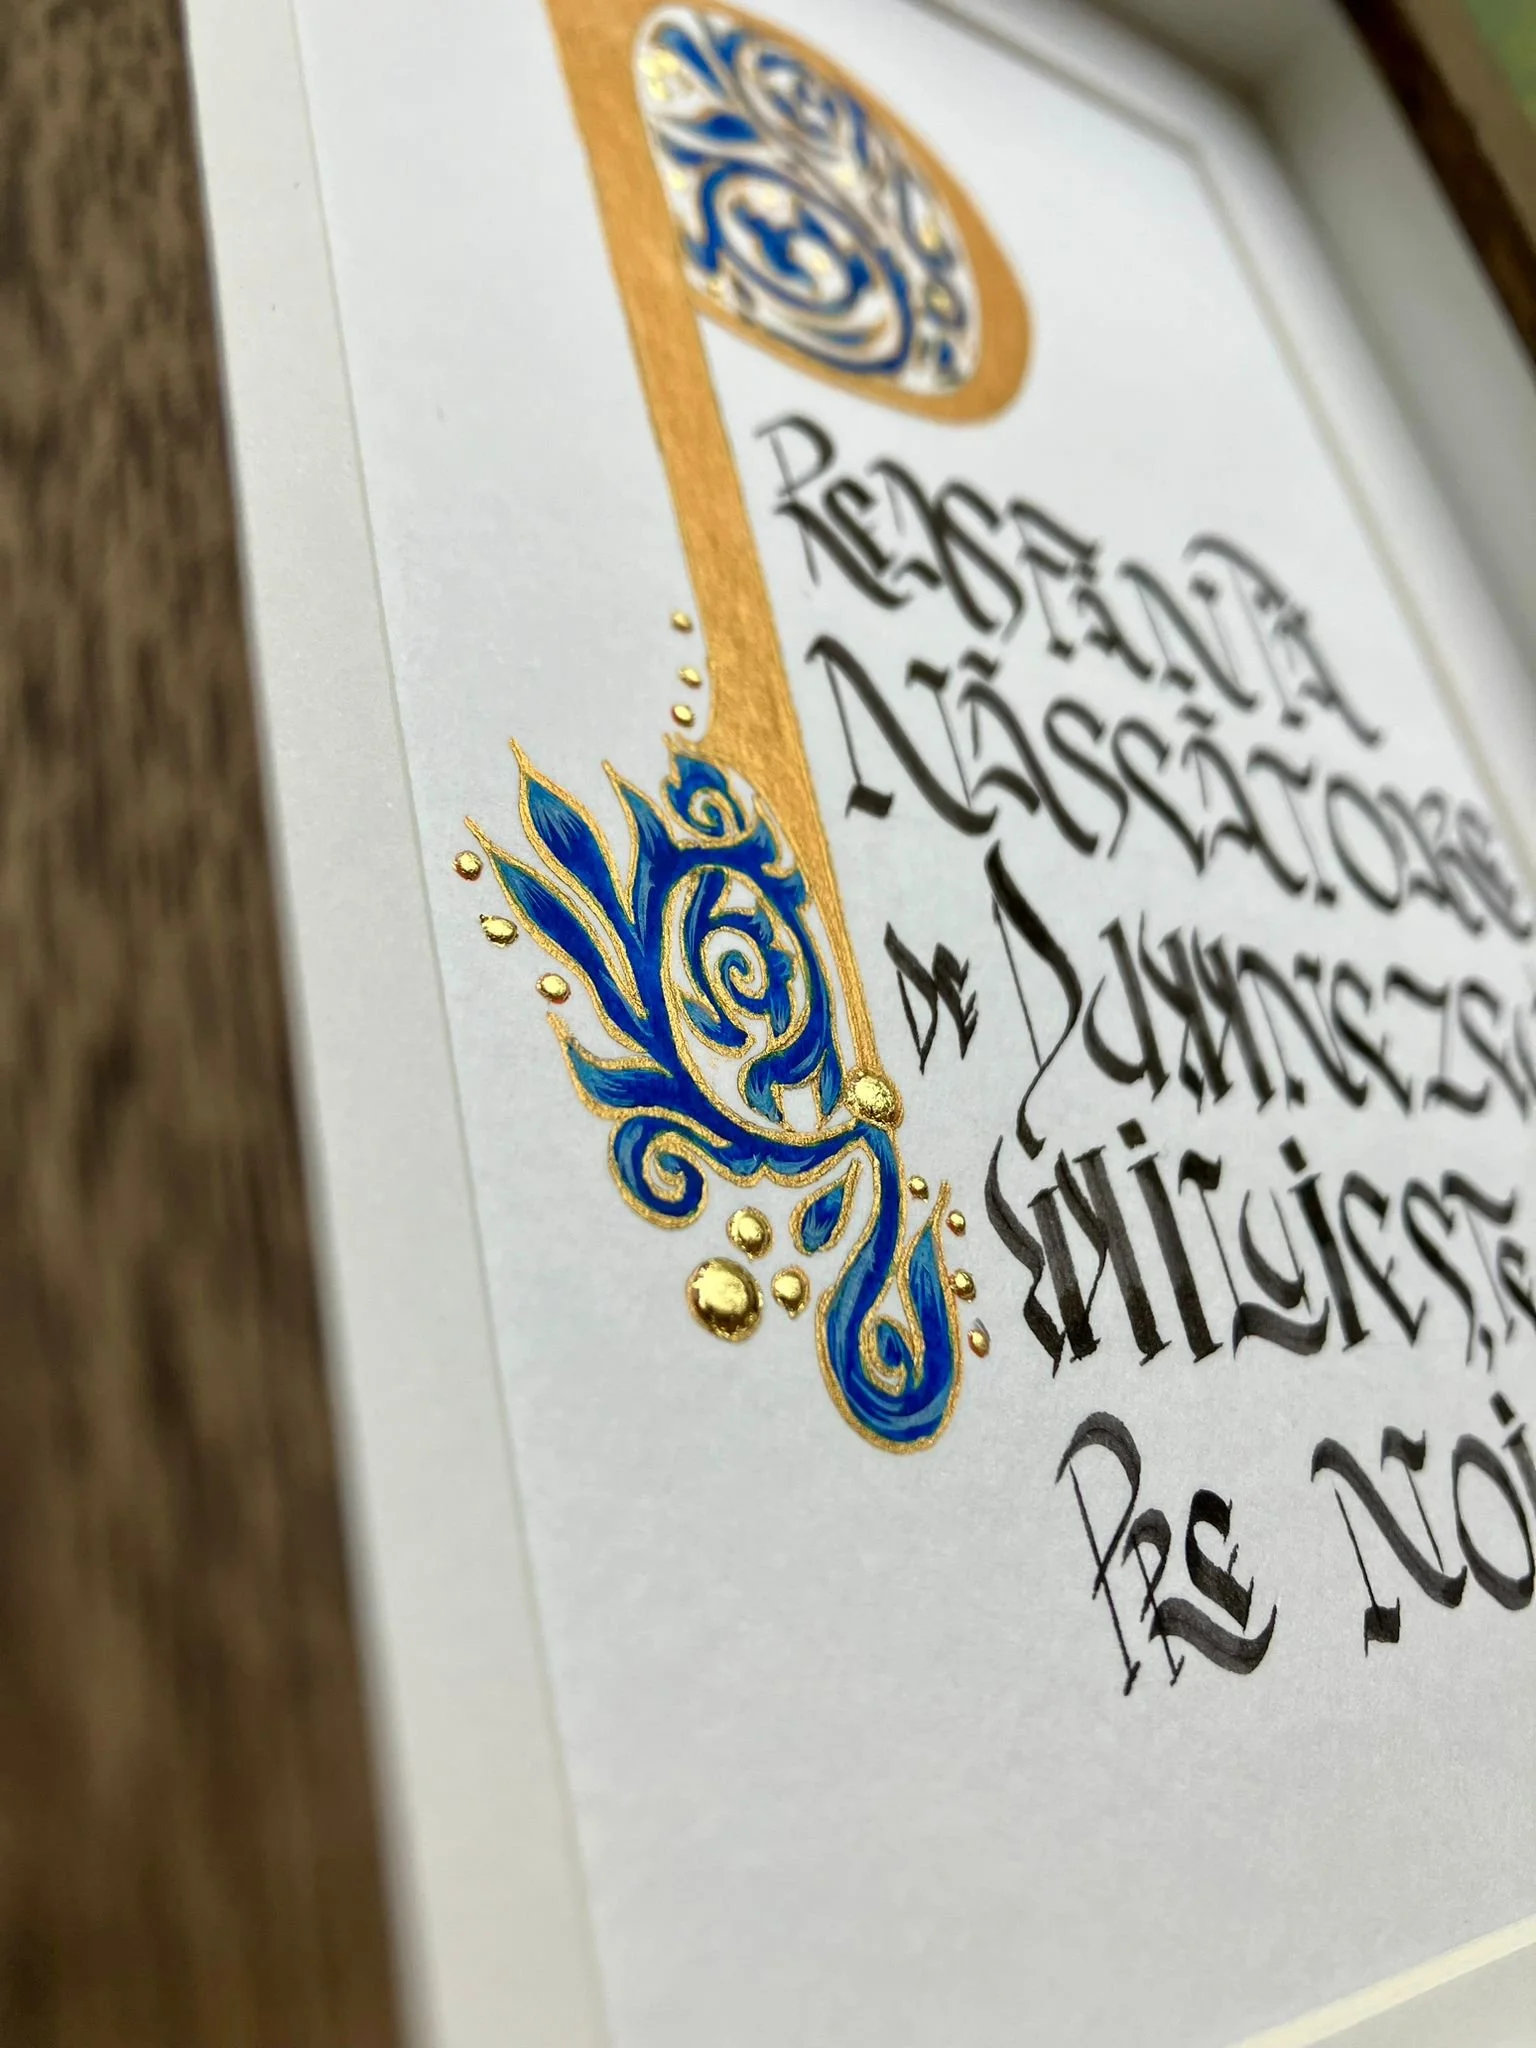 Preasfântă
Născătoare
de Dumnezeu
miluiește-ne
Pre Noi